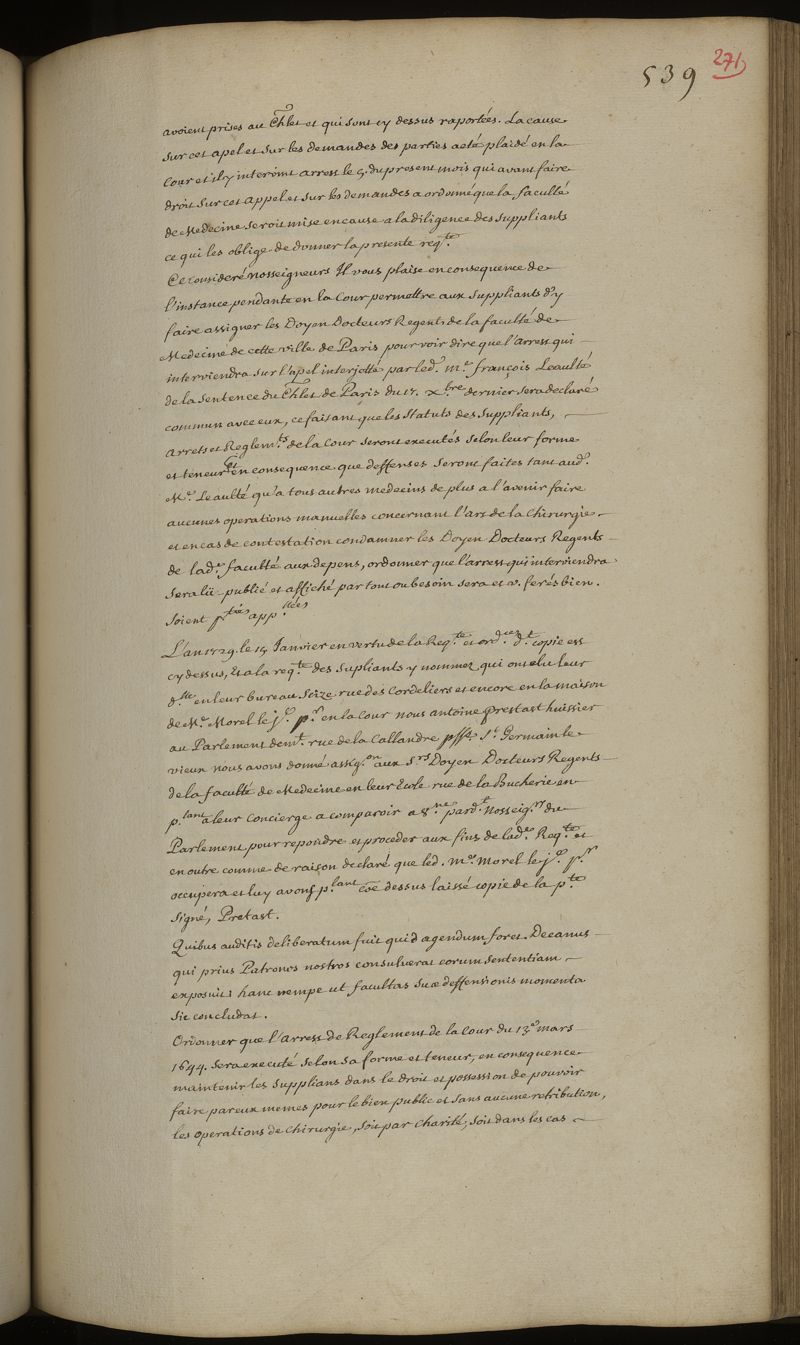 539 271
avoient prises au Chlet et qui sont cy dessus raportées. La cause
sur cet apel et sur les demandes des parties a eté plaidé en la
Cour et il y intervint arrest le 5. du present mois qui avant faire
droit sur cet appel et sur les demandes a ordonné que la faculté
de Medecine seroit mise en cause a la diligence des suppliants
ce qui les oblige de donner la presente reqte.
Ce consideré nosseigneurs Il vous plaise en consequence de
l'instance pendante en la Cour permettre aux suppliants d'y
faire assigner les Doyen Docteurs Regents de la faculté de
Medecine de cette ville de Paris pour voir dire que l'arrest qui
interviendra sur l'apel interjetté par led. Me. françois Leaulté
de la sentence du Chlet de Paris du 17. xbre dernier sera declaré
commun avec eux, ce faisant que les Statuts des Suppliants,
arrets et Reglemts. de la Cour seront executés selon leur forme
et teneur et en consequence que deffenses seront faites tant aud.
Me. Leaulté qu'a tous autres medecins de plus a l'avenir faire
aucunes operations manuelles concernant l'art de la Chirurgie
et en cas de contestation condamner les Doyen Docteurs Regents
de lade. faculté aux depens, ordonner que l'arrest qui interviendra
sera lü publié et affiché par tout ou besoin sera et v. ferés bien.
Soient ptées appllées
L'an 1729. le 15 Janvier en vertu de la Reqte et ordce dt copie est
cy dessus, Et a la reqte des supliants y nommez, qui ont elu leur
dlle en leur bureau Scize rue des Cordeliers et encore en la maison
de Me. Morel le je. pr. en la Cour nous antoine Prestast huissier
au Parlement demt. rue de la Callandre psse St. Germain le
vieux nous avons donné assig.on aux Srs Doyen Docteurs Regents
de la faculté de Medecine en leur Ecole rue de la Bucherie en
plant a leur Concierge a comparoir a 8ne pardt Nosseigrs du
Parlement pour repondre et proceder aux fins de lade. Reqte et
en outre comme de raison declaré que led. me. Morel le je. pr
occupera et luy avons plant coe dessus laissé copie de la pte
Signé, Pretast.
Quibus auditis deliberatum fuit quid agendum foret. Decanus
qui prius Patronos nostros consuluerat eorum sententiam
exposuit; hanc nempe ut facultas suæ deffensionis momenta
sic concludat.
Ordonner que l'arrest de Reglement de la Cour du 13e mars
1644. sera executé selon sa forme et teneur, en consequence
maintenir les supplians dans le droit et possession de pouvoir
faire par eux memes pour le bien public et sans aucune retribution,
les operations de chirurgie, soit par charité, soit dans les cas